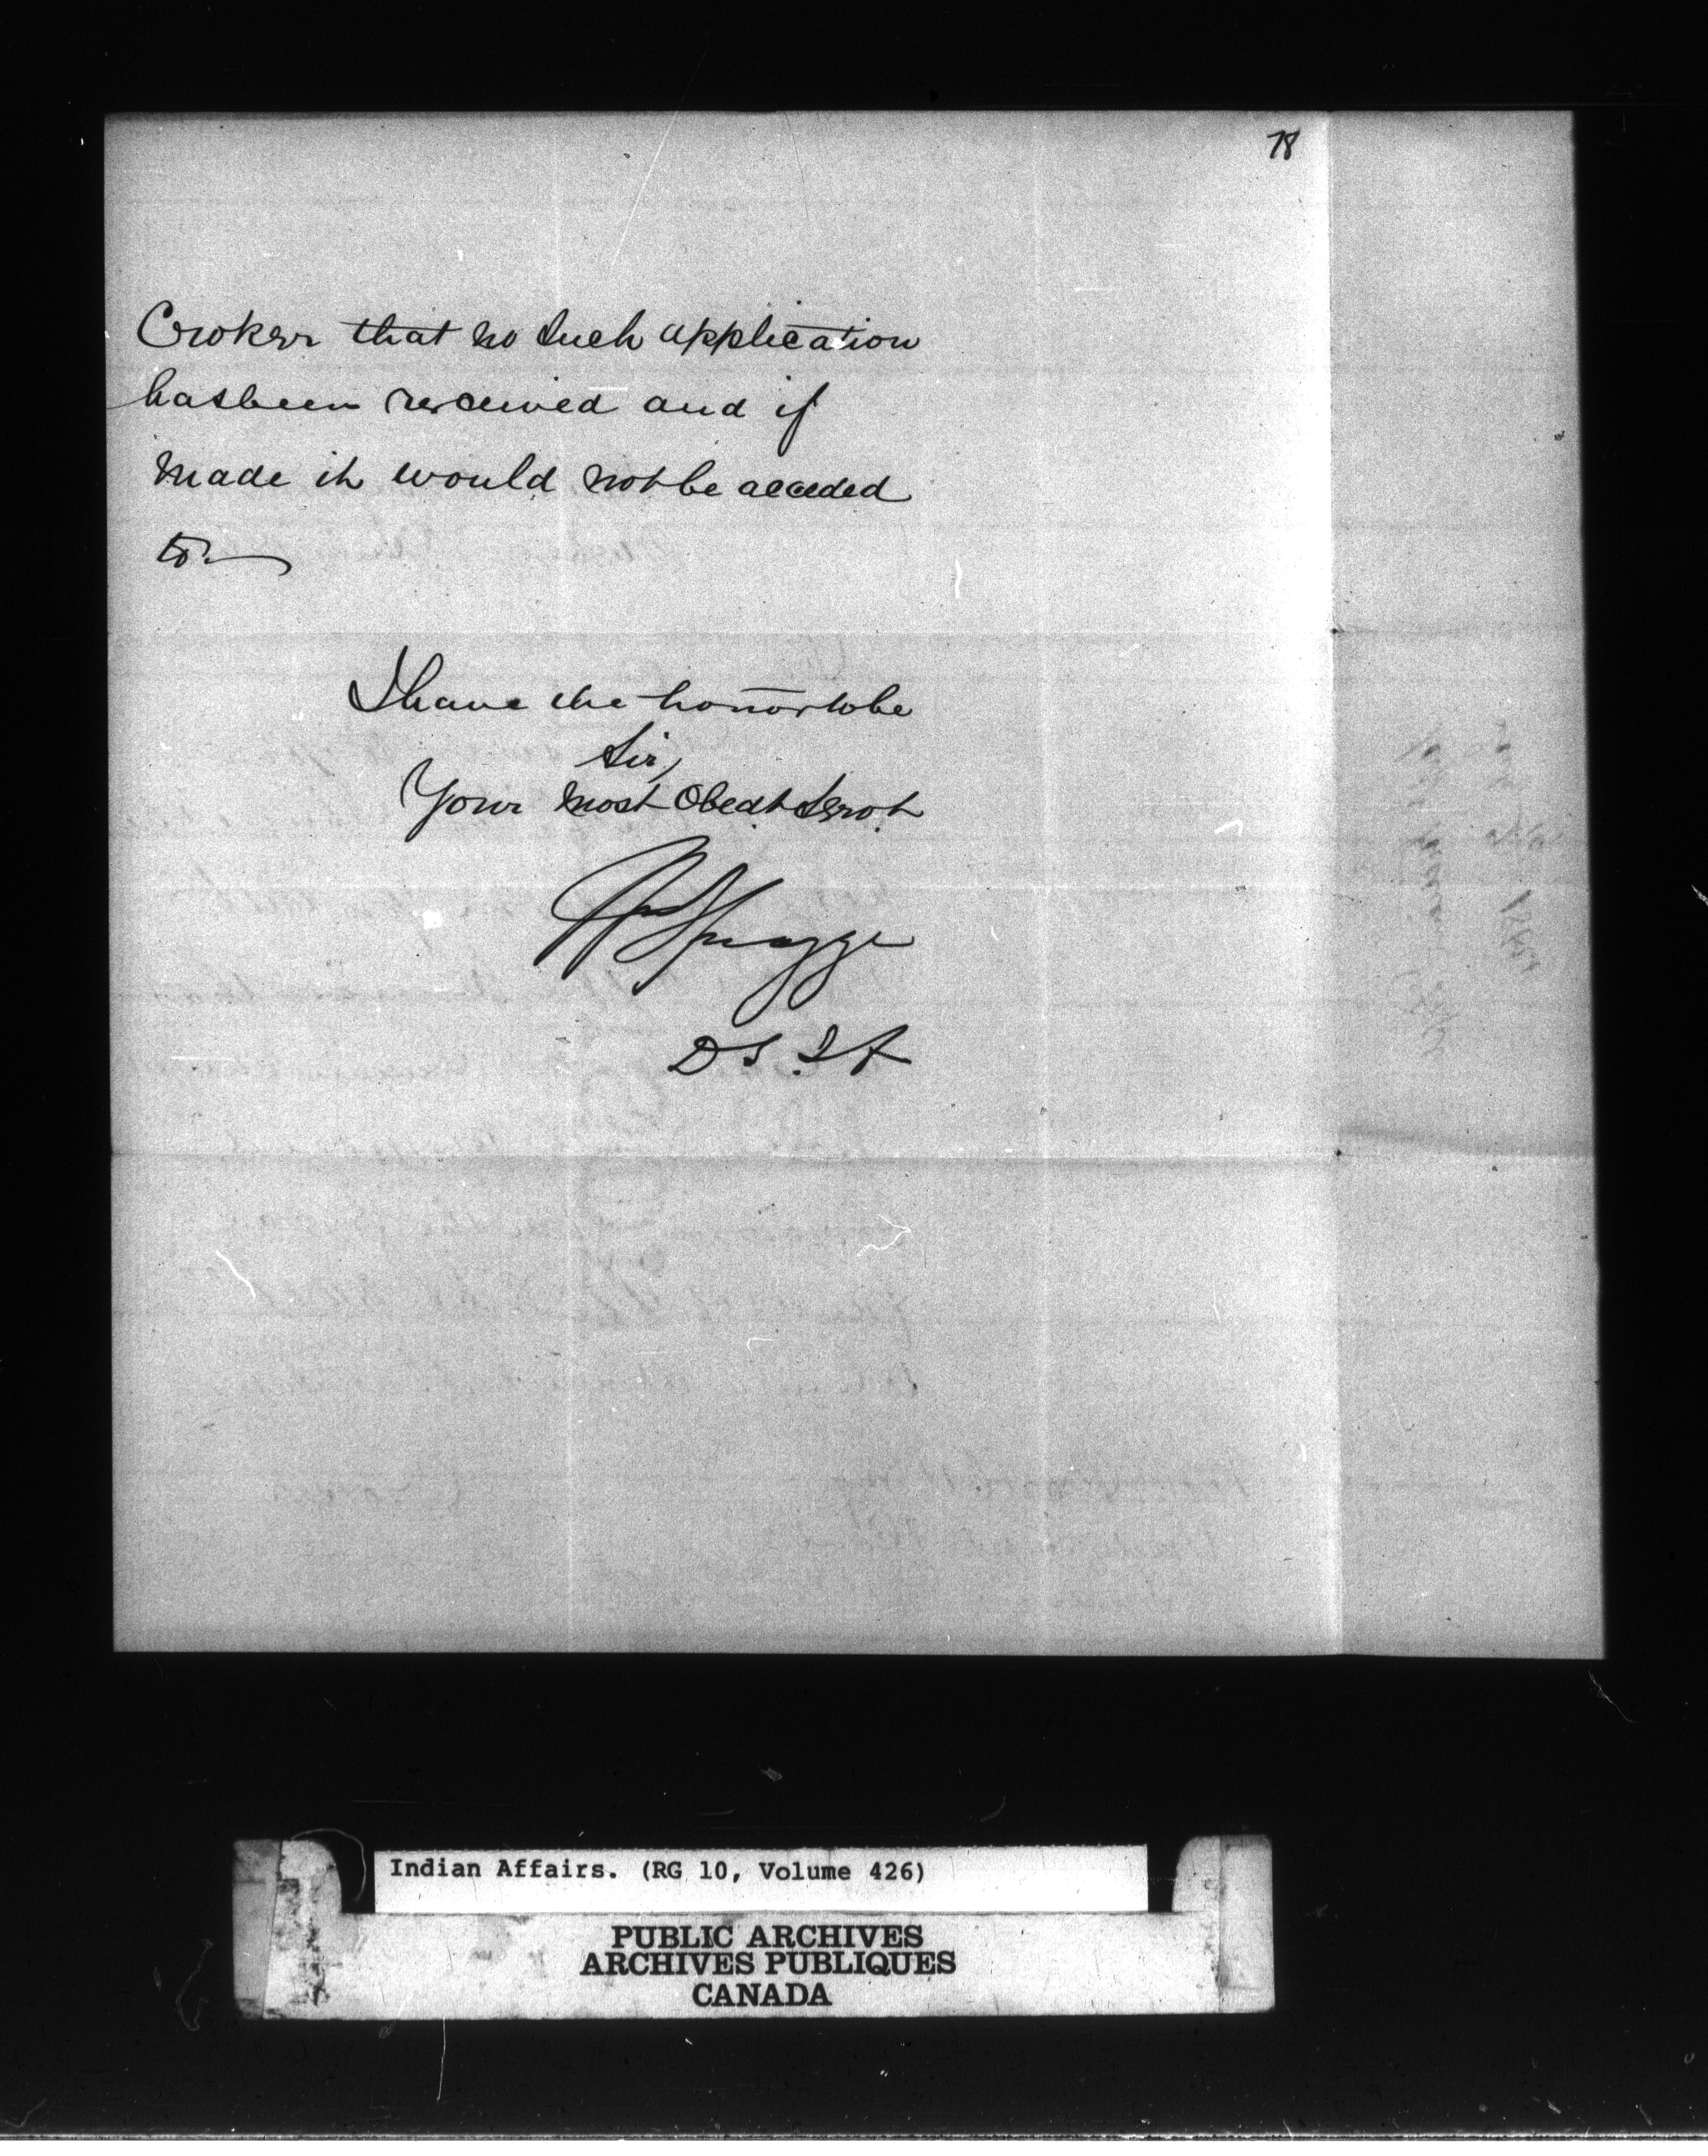 78
Croker that no such application
has been received and if
made it would not be acceded
to.
I have the honor to be
Sir,
Your most Obedt Servt
Spragge
D S. I A
Indian Affairs. (RG 10, Volume 426)
PUBLIC ARCHIVES
ARCHIVES PUBLIQUES
CANADA